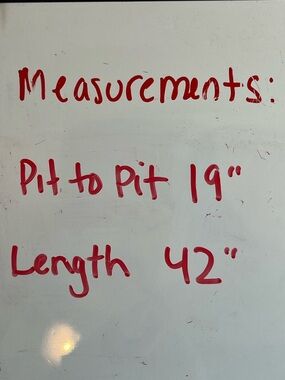 Measurements:
Pit to Pit 19"
Length 42"